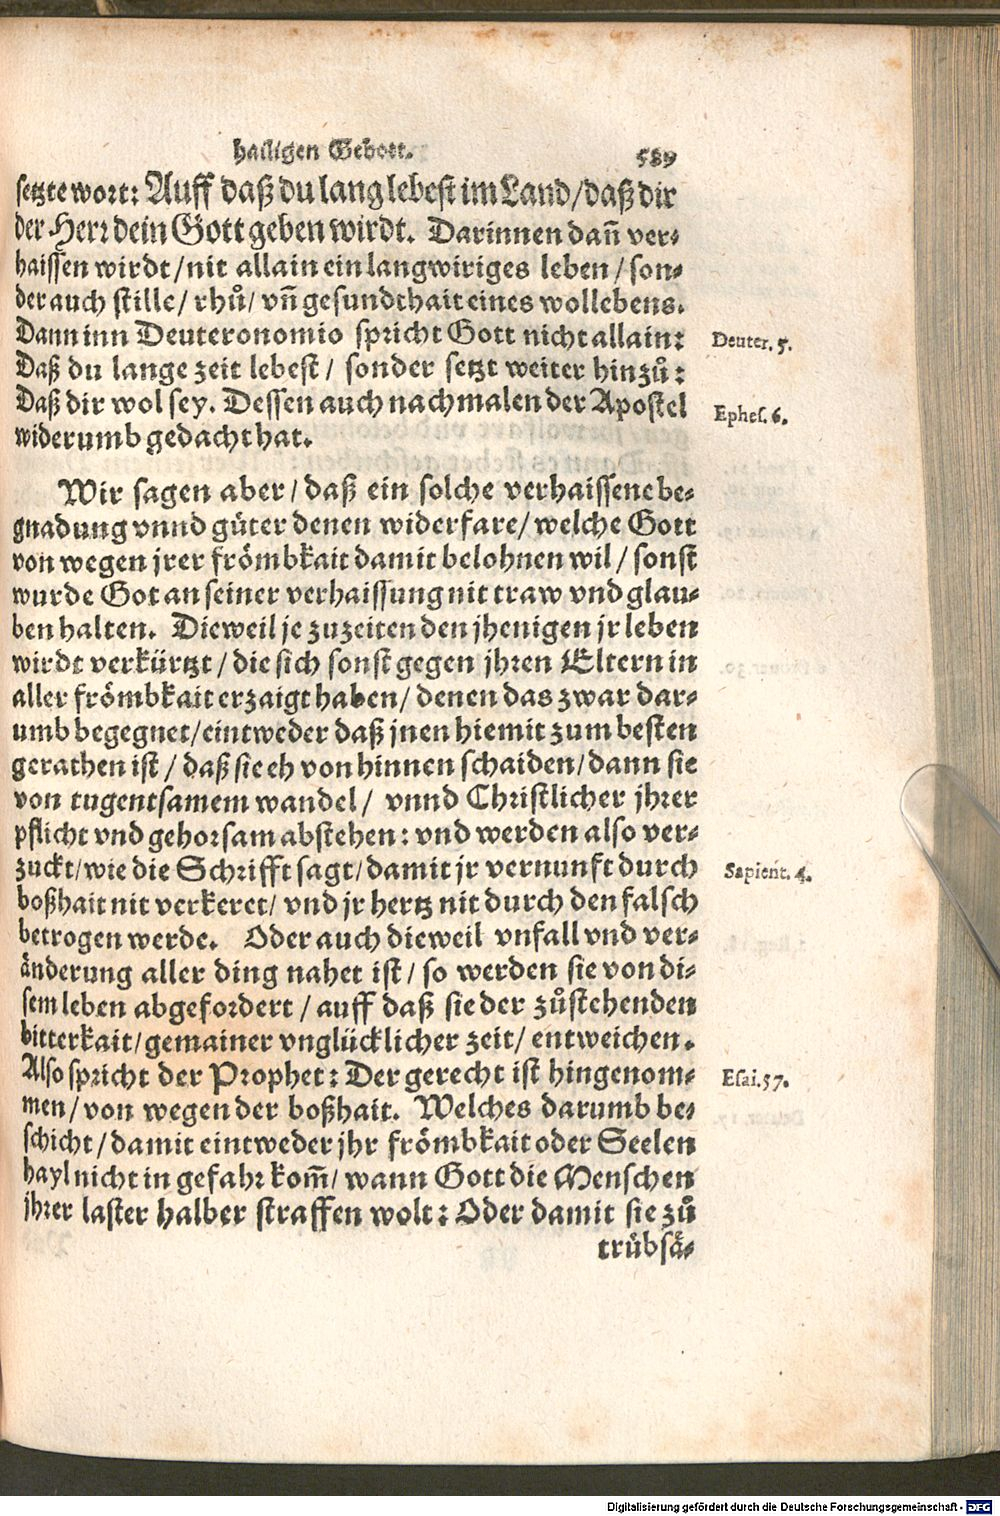 hailigen Gebott. 589
setzte wort: Auff daß du lang lebest im Land/daß dir
der Herr dein Gott geben wirdt. Darinnen dañ ver-
haissen wirdt/nit allain ein langwiriges leben/son-
der auch stille/rhů/vñ gesundthait eines wollebens.
Dann inn Deuteronomio spricht Gott nicht allain:
Deuter. 5.
Daß du lange zeit lebest/ sonder setzt weiter hinzů:
Daß dir wol sey. Dessen auch nachmalen der Apostel
Ephes. 6.
widerumb gedacht hat.
Wir sagen aber/daß ein solche verhaissene be-
gnadung vnnd güter denen widerfare/welche Gott
von wegen jrer frömbkait damit belohnen wil/sonst
wurde Got an seiner verhaissung nit traw vnd glau-
ben halten. Dieweil je zuzeiten den jhenigen jr leben
wirdt verkürtzt/die sich sonst gegen jhren Eltern in
aller frömbkait erzaigt haben/denen das zwar dar-
umb begegnet/eintweder daß jnen hiemit zum besten
gerathen ist/daß sie eh von hinnen schaiden/dann sie
von tugentsamem wandel/ vnnd Christlicher jhrer
pflicht vnd gehorsam abstehen: vnd werden also ver-
zuckt/wie die Schrifft sagt/damit jr vernunft durch
Sapient. 4.
boßhait nit verkeret/ vnd jr hertz nit durch den falsch
betrogen werde. Oder auch dieweil vnfall vnd ver-
änderung aller ding nahet ist/so werden sie von di-
sem leben abgefordert/auff daß sie der zůstehenden
bitterkait/gemainer vnglücklicher zeit/entweichen.
Also spricht der Prophet: Der gerecht ist hingenom-
Esai.57.
men/von wegen der boßhait. Welches darumb be-
schicht/damit eintweder jhr frömbkait oder Seelen
hayl nicht in gefahr kom̃/wann Gott die Menschen
jhrer laster halber straffen wolt: Oder damit sie zů
trübsä-
Digitalisierung gefördert durch die Deutsche Forschungsgemeinschaft - DFG